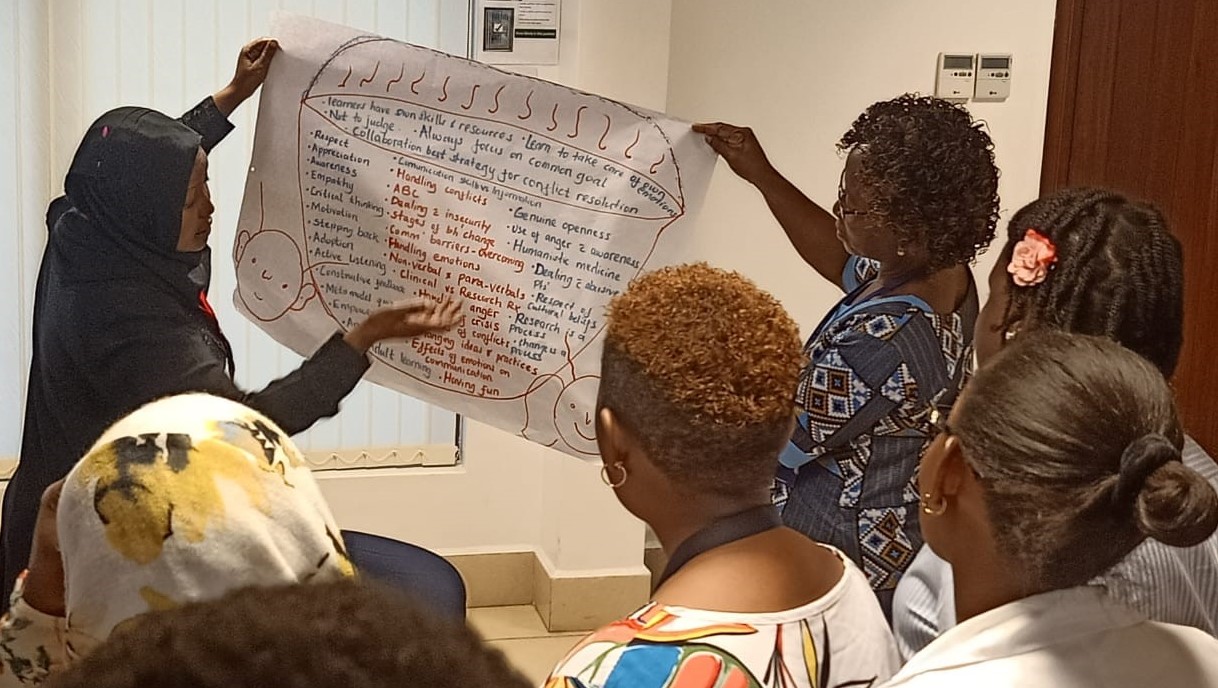 • learners have own skills & resources • Learn to take care of own emotions
• Not to judge. • Always focus on common goal
• Collaboration best strategy for conflict resolution
• Respect
• Appreciation
• Awareness
• Empathy
• Critical thinking
• Motivation
• Stepping back
• Adoption
• Active Listening
• Constructive feedback
• Metamodel
• Communication skills vs Information
• Handling conflicts
• ABC
• Dealing c̄ insecurity
• Stages of bh change
• Comm' barriers - overcoming
• Handling emotions
• Non-verbal & para-verbals
• Clinical vs Research Rx
anger
of crisis
of conflicts
ideas & practices
• Effects of emotions on
communication
adult learning • Having fun
• Genuine openness
• use of anger & awareness
• Humanistic medicine
• Dealing c̄ abusive
pts'
• Respect of
cultural beliefs
• Research is a
process
• change is a
process